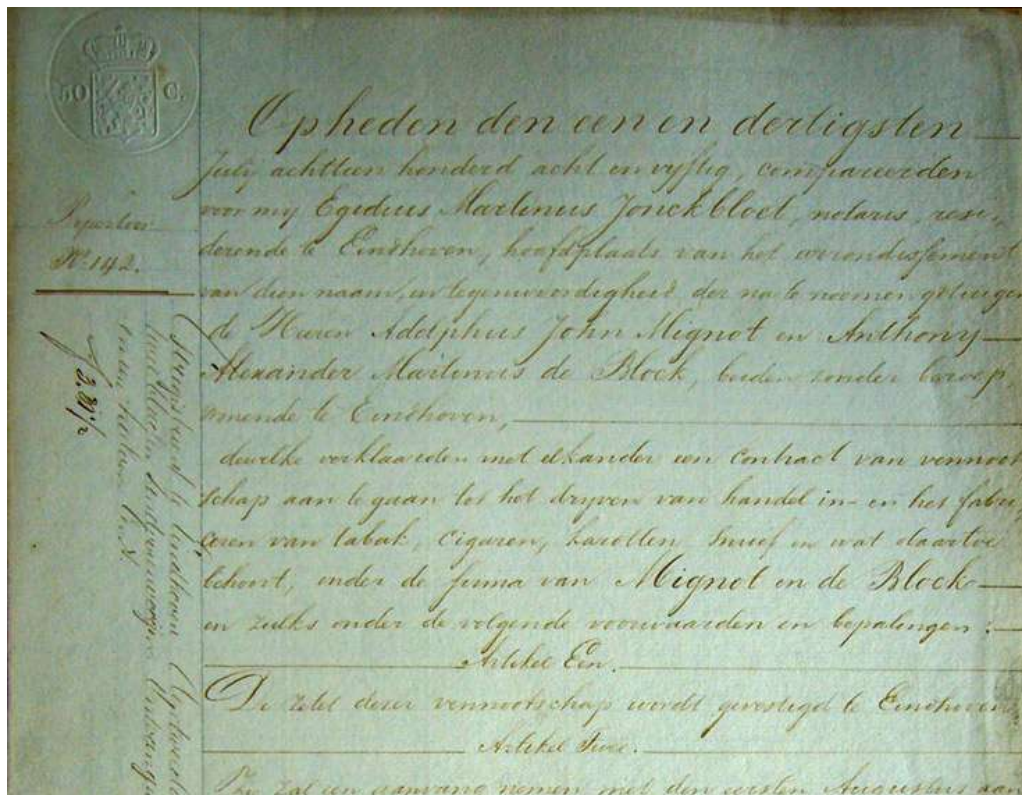 50 C.
Opheden den een en dertigsten
July achttien honderd acht en vyftig, compareerden
voor my Egidius Martinus Jonckbloet, notaris, resi-
derende te Eindhoven, hoofdplaats van het arrondissement
van dien naam, in tegenwoordigheid der na te noemen getuigen
de Heeren Adolphus John Mignot en Anthony
Alexander Martinus de Block, beiden zonder beroep,
wonende te Eindhoven,
dewelke verklaarden met elkander een contract van vennoot
schap aan te gaan tot het dryven van handel in- en het fabri
ceren van tabak, cigaren, karotten, snuif en wat daartoe
behoort, onder de firma van Mignot en de Block
en zulks onder de volgende voorwaarden en bepalingen:
Artikel Een.
De zetel dezer vennootschap wordt gevestigd te Eindhoven
Artikel Twee.
Zy zal een aanvang nemen met den eersten Augustus aan
Repertoire
No. 142.
Geregistreerd te Eindhoven